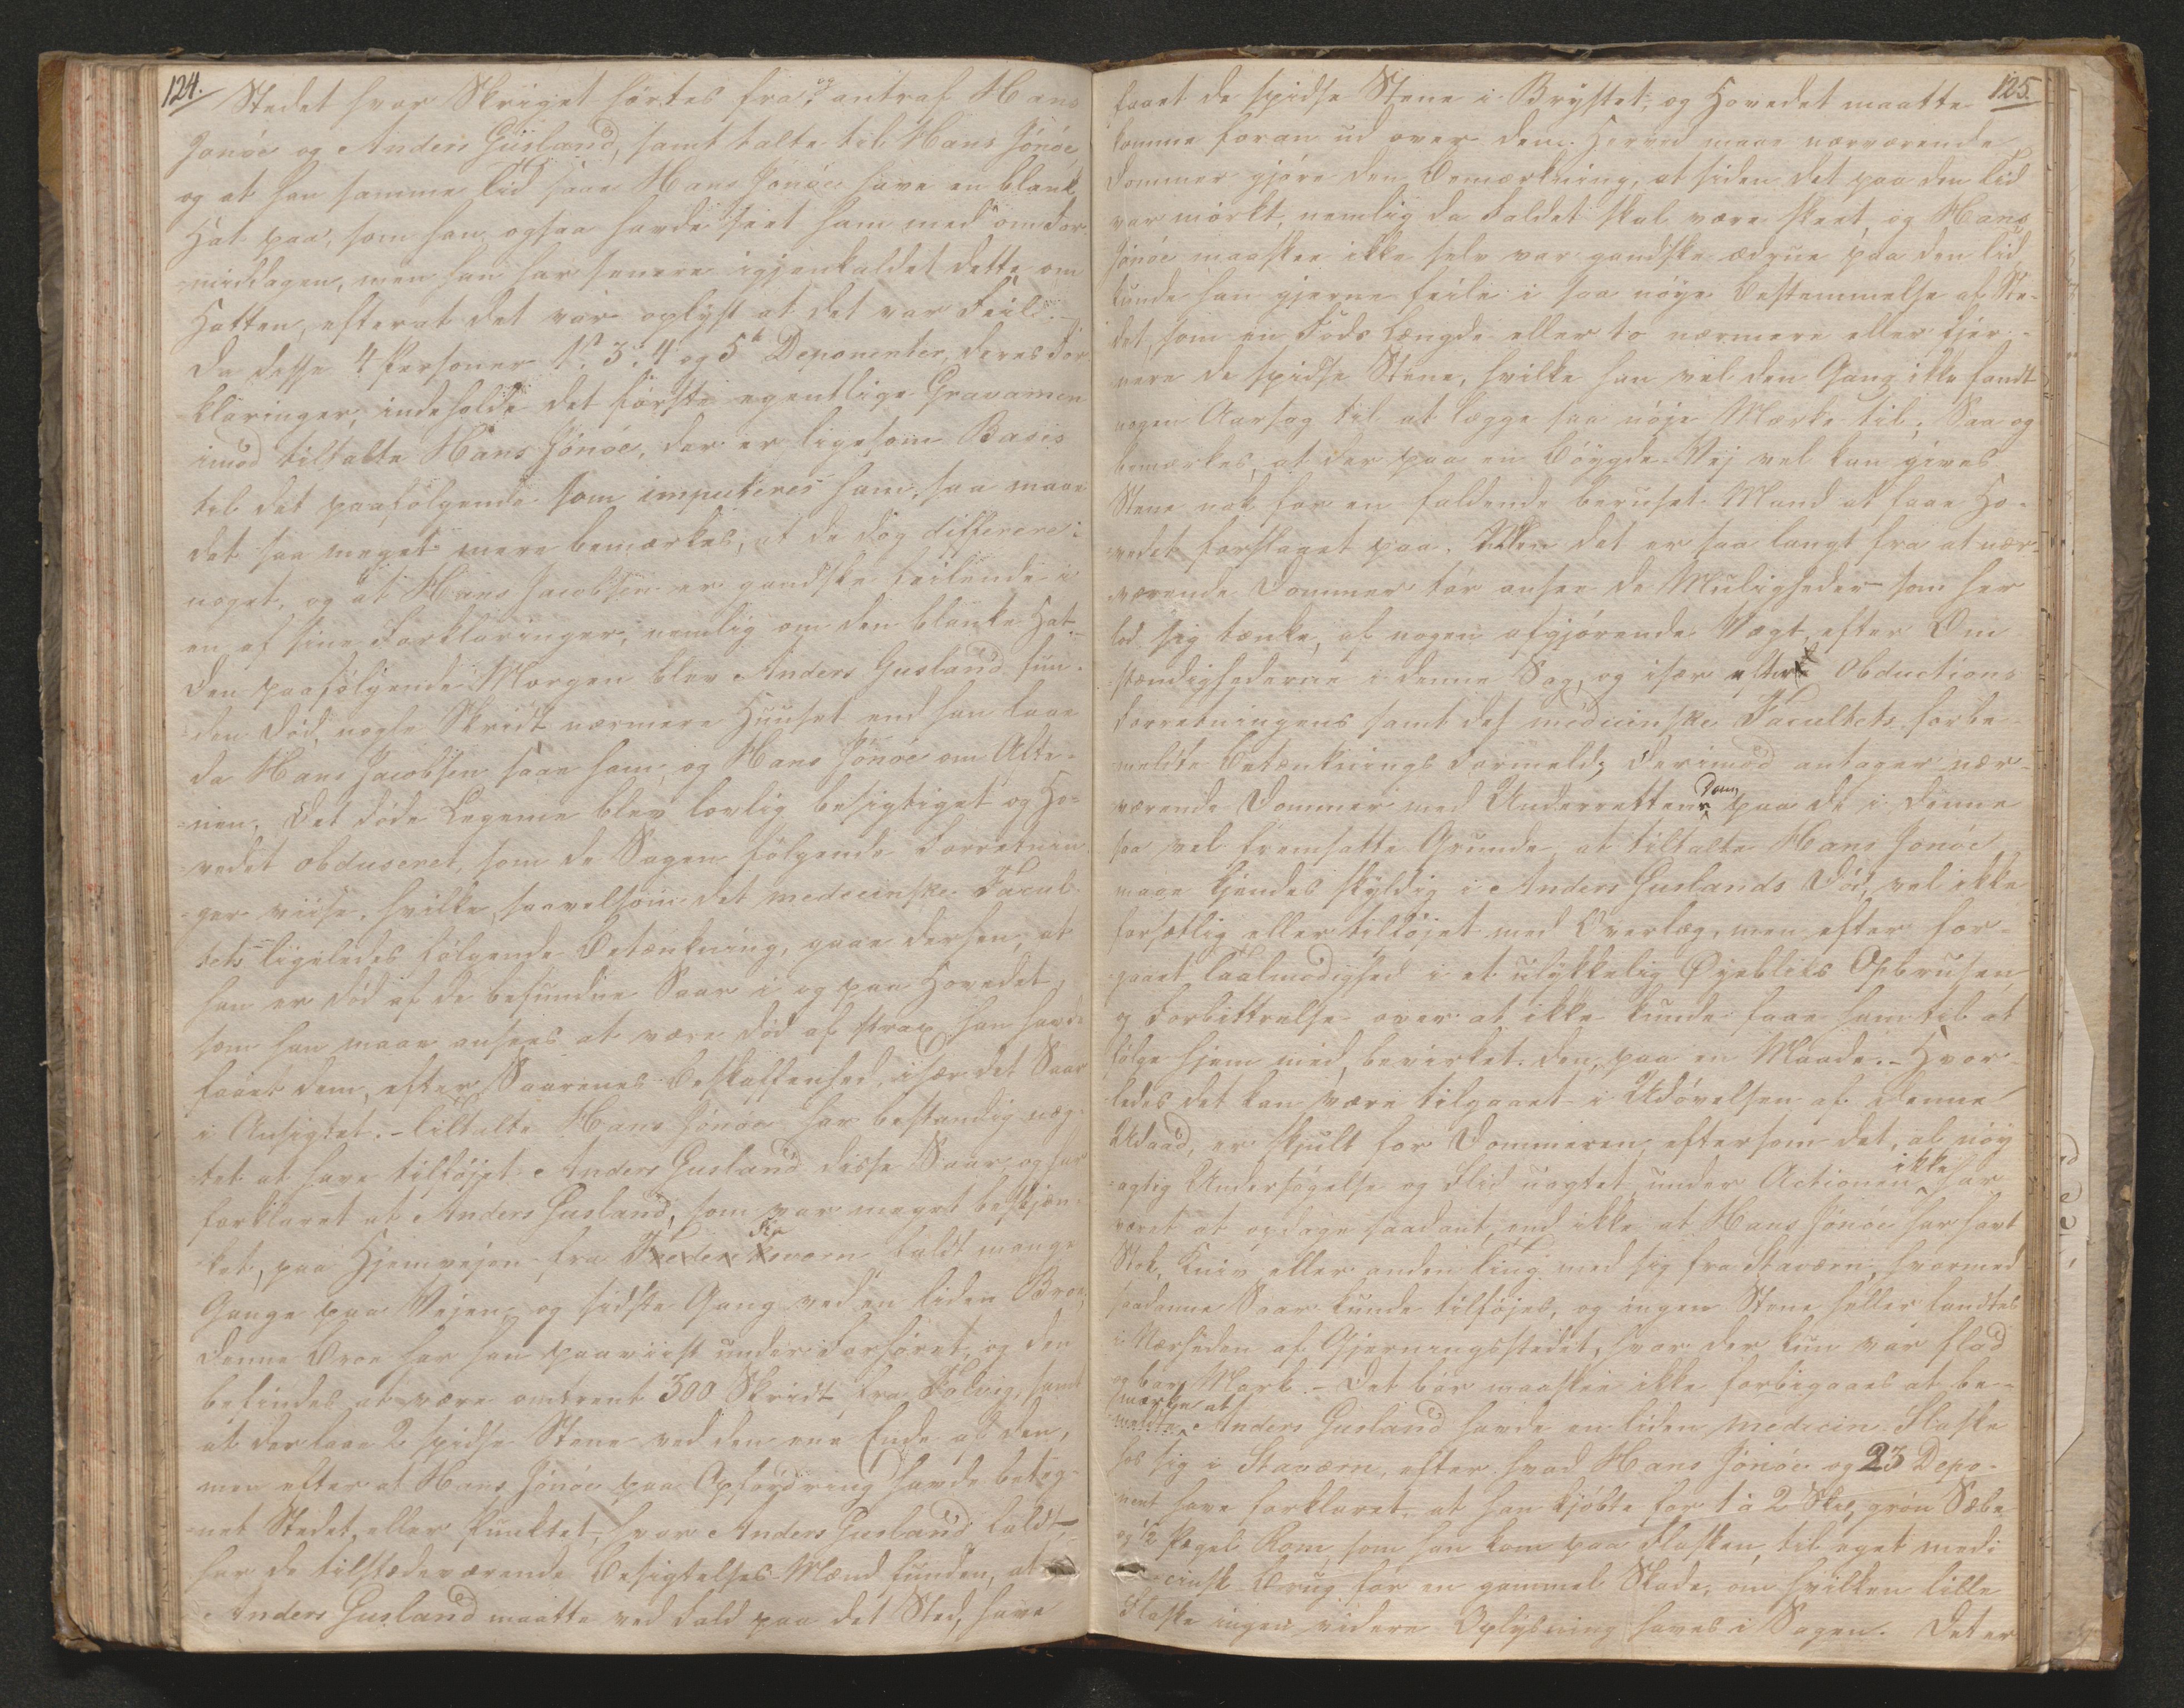 124.
Stedet hvor Skriget hørtes fra, og antraf Hans
Jonøe og Anders Gusland, samt talte til Hans Jonøe,
og at han samme Tid saae Hans Jonøe have en blank
Hat paa, som han ogsaa havde seet ham med om For-
middagen, men han har senere igjenkaldet dette om
Hatten, efterat det var oplyst at det var Feil.
Da disse 4 Personer 1, 3, 4 og 5te Deponenter, deres For-
klaringer, indeholde det første egentlige Gravamen
imod tiltalte Hans Jonøe, der er ligesom Basis
til det paafølgende som imputeres ham, saa maae
det saa meget mere bemærkes, at de dog differere i
noget, og at Hans Jacobsen er gandske feilende i
en af sine Forklaringer, nemlig om den blanke Hat.
Den paafølgende Morgen blev Anders Gusland fun-
den død, nogle Skridt nærmere Huuset end han laae
da Hans Jacobsen saae ham og Hans Jonøe om Afte-
nen. Det døde Legeme blev lovlig besigtiget og Ho-
vedet obduceret, som de Sagen følgende Forretnin-
ger viise, hvilke, saavelsom det medicinske Facul-
tets ligeledes følgende Betænkning, gaae derhen, at
han er død af de befundne Saar i og paa Hovedet,
som han maae ansees at være død af strax han havde
faaet dem, efter Saarenes Beskaffenhed, især det Saar
i Ansigtet. - Tiltalte Hans Jonøe har bestandig næg-
tet at have tilføjet Anders Gusland disse Saar, og har
forklaret at Anders Gusland, som var meget beskjæn-
ket, paa Hjemvejen fra Frederiksværn faldt mange
Gange paa Vejen, og sidste Gang ved en liden Broe,
denne Broe har han paaviist under Forhøret, og den
befindes at være omtrent 300 Skridt fra Foldvig, samt
at der laae 2 spidse Stene ved den ene Ende af den,
men efter at Hans Jonøe paa Opfordring havde beteg-
net Stedet, eller Punktet, hvor Anders Gusland faldt,
har de tilstedeværende Besigtelses-Mænd funden, at
Anders Gusland maatte ved Fald paa det Sted, have
125.
faaet de spidse Stene i Brystet, og Hovedet maatte
komme foran ud over dem. Herved maae nærværende
Dommer gjøre den Bemærkning, at siden det paa den Tid
var mørkt, nemlig da Faldet skal være skeet, og Hans
Jonøe maaskee ikke selv var gandske ædrue paa den Tid,
kunde han gjerne feile i saa nøye Bestemmelse af Ste-
det, som en Fods Længde eller to nærmere eller fjer-
nere de spidse Stene, hvilke han vel den Gang ikke fandt
nogen Aarsag til at lægge saa nøje Mærke til; Saa og
bemærkes, at der paa en Bøygde-Vej vel kan gives
Stene nok for en faldende beruset Mand at faae Ho-
vedet forslaget paa. Men det er saa langt fra at nær-
værende Dommer tør ansee de Muligheder som her
lod sig tænke, af nogen afgjørende Vægt, efter Om
stændighederne i denne Sag, og især efter Obductions
Forretningens samt det medicinske Facultets forbe-
meldte Betænknings Formeld; derimod antager nær-
værende Dommer med Underretten dom paa de i denne
saa vel fremsatte Grunde, at tiltalte Hans Jonøe
maae kjendes skyldig i Anders Guslands Død, vel ikke
forsætlig eller tilføjet med Overlæg, men efter for-
gaaet Taalmodighed i et ulykkelig Øyebliks Opbrusen
og Forbittrelse over at ikke kunde faae ham til at
følge hjem med, bevirket den, paa en Maade. - Hvor-
ledes det kan være tilgaaet i Udøvelsen af denne
Udaad, er skjult for Dommeren, eftersom det, al nøy
agtig Undersøgelse og Flid uagtet under Actionen ikke har
været at opdage saadant, end ikke at Hans Jonøe har havt
Stok, Kniv eller anden Ting med sig fra Staværn, hvormed
saadanne Saar kunde tilføjes, og ingen Stene heller fandtes
i Nærheden af Gjerningsstedet, hvor der kun var flad
og bar Mark. - Det bør maaskee ikke forbigaaes at be-
mærke at Anders Gusland havde en liden Medicin Flaske
hos sig i Staværn, efter hvad Hans Jonøe og 23 Depo-
nent have forklaret, at han kjøbte for 1 à 2 Skil, grøn Sæbe
og 1/2 Pægel Rom, som han kom paa Flasken, til eget medi-
cinsk Brug for en gammel Skade, om hvilken lille
Flaske ingen videre Oplysning haves i Sagen. Det er